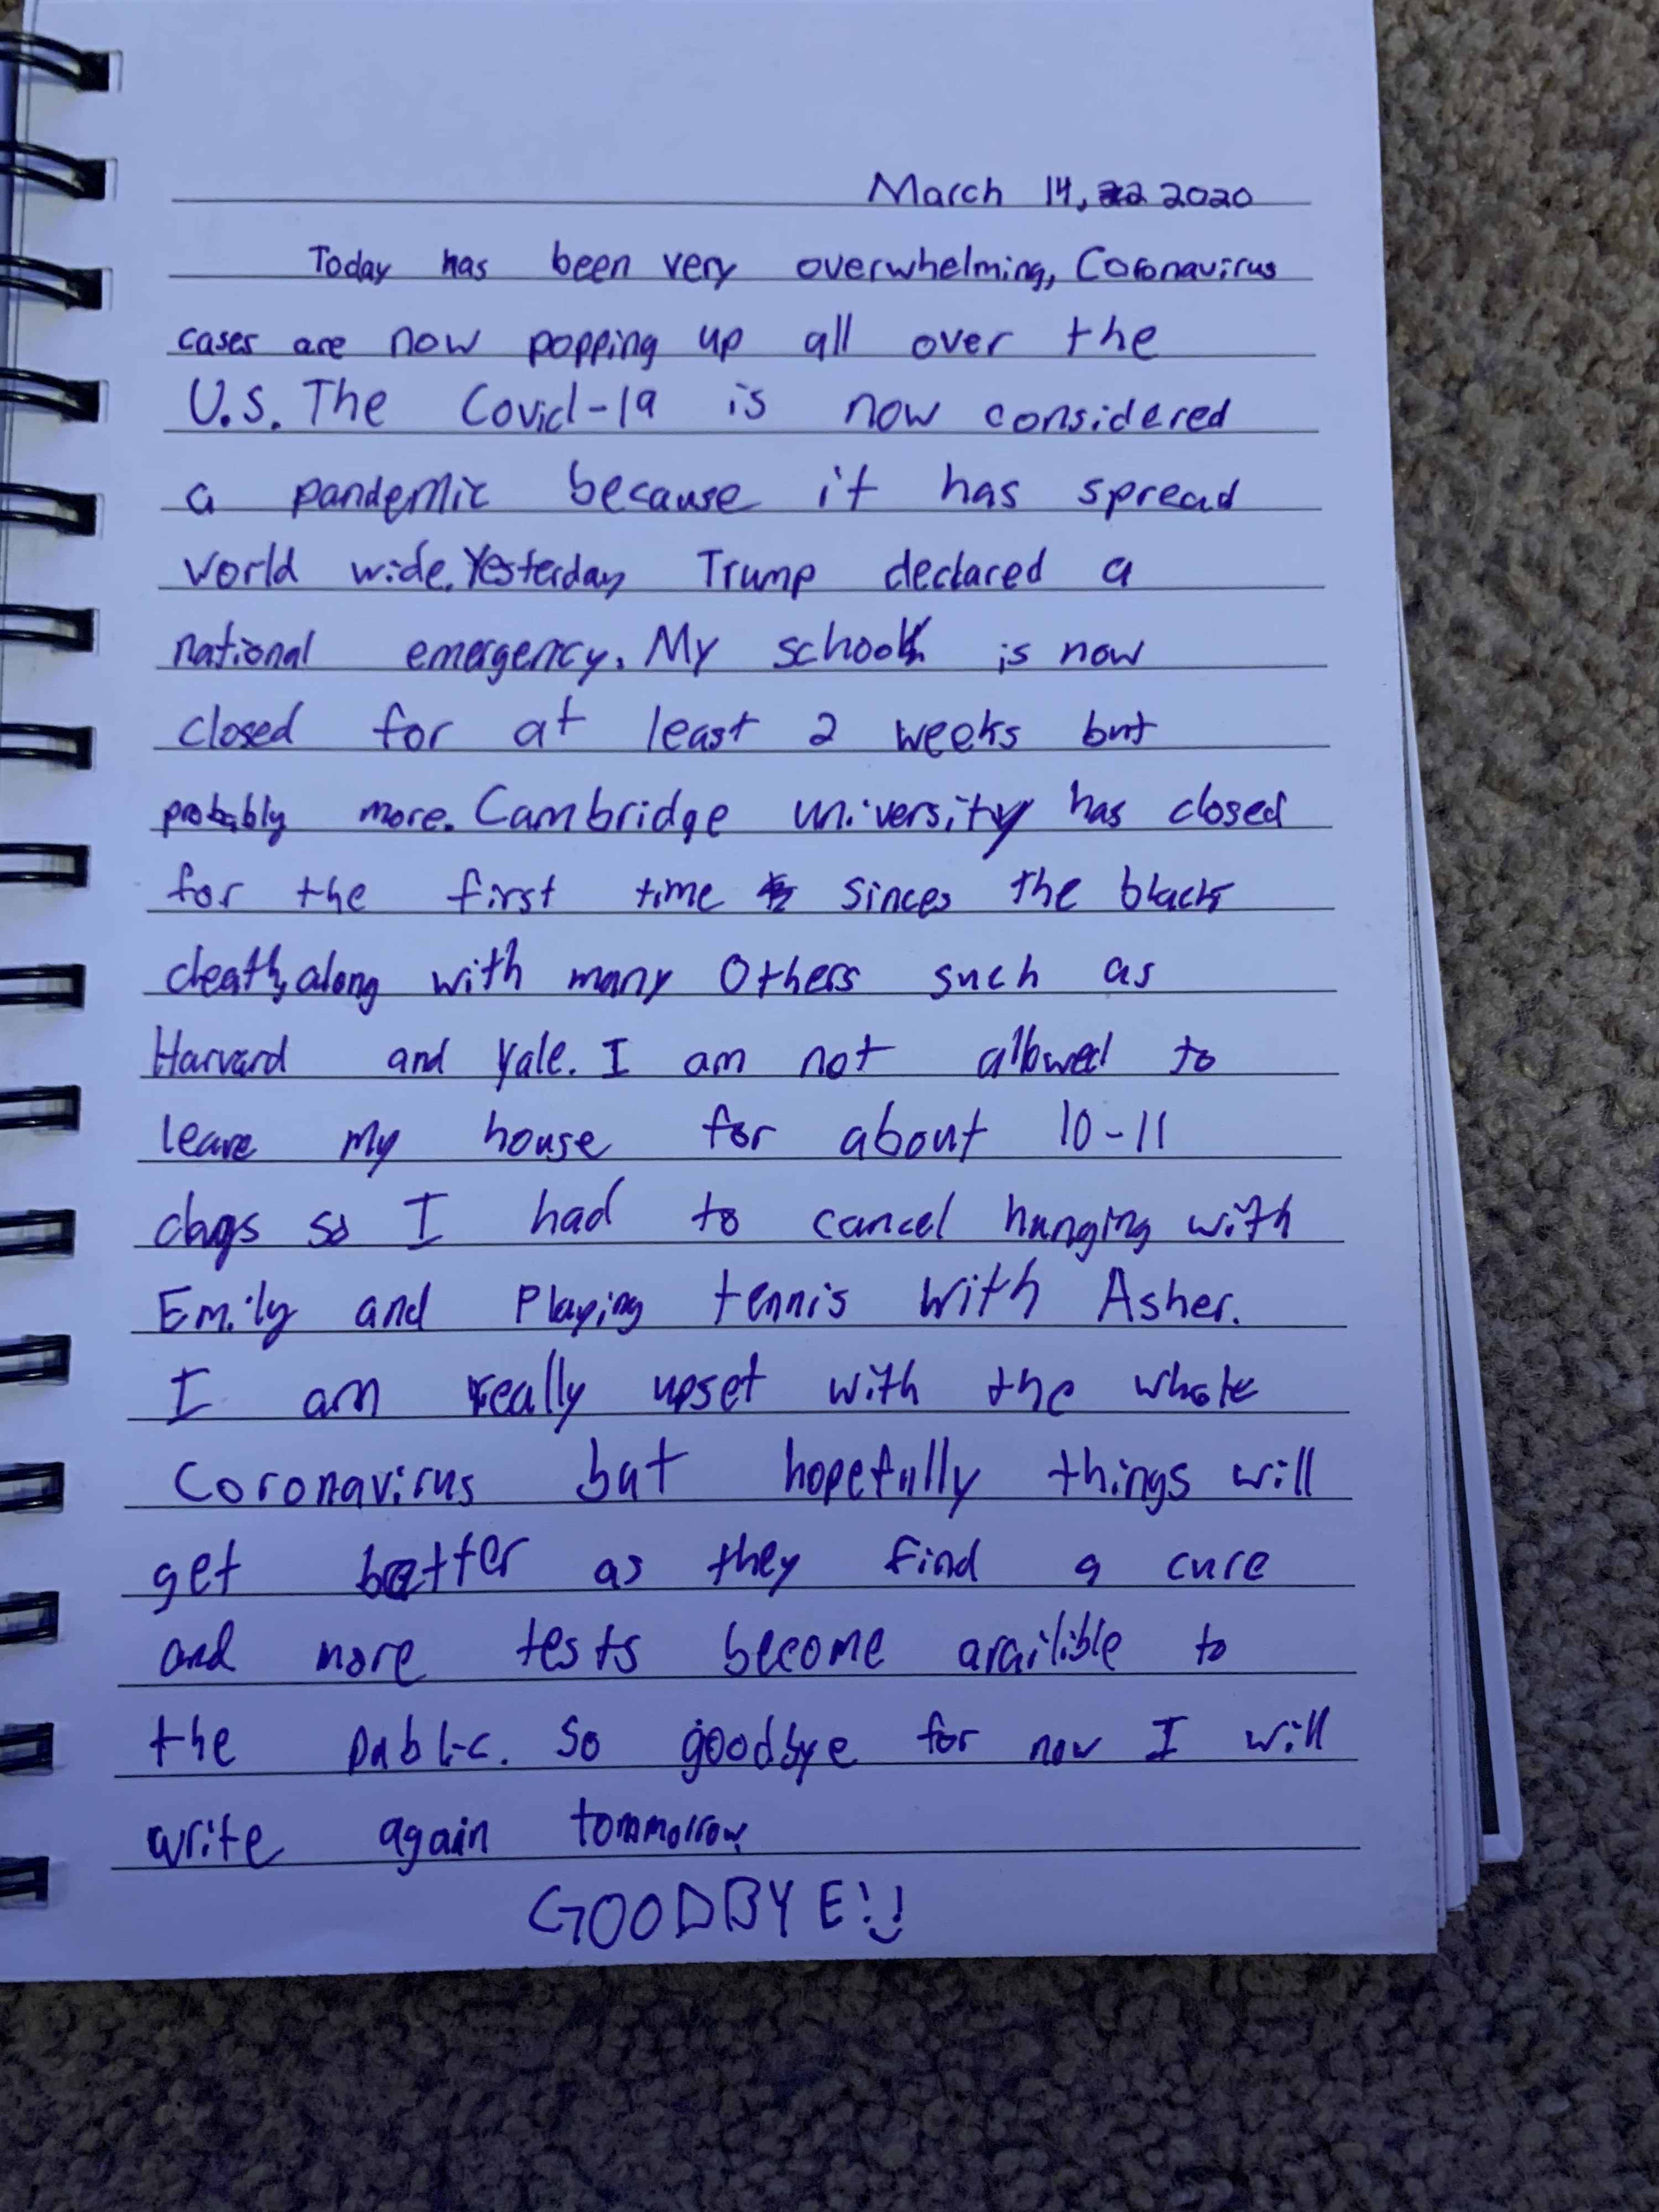 March 14, 2020
Today has been very overwhelming, Coronavirus
cases are now popping up all over the
U.S. The Covid-19 is now considered
a pandemic because it has spread
world wide. Yesterday Trump declared a
national emergency. My school is now
closed for at least 2 weeks but
probably more. Cambridge university has closed
for the first time sinces the black
death, along with many Others such as
Harvard and Yale. I am not allowed to
leave my house for about 10-11
days so I had to cancel hanging with
Emily and Playing tennis with Asher.
I am really upset with the whole
Coronavirus but hopefully things will
get better as they find a cure
and more tests become availible to
the public. So goodbye for now I will
write again tommorrow.
GOODBYE! :)